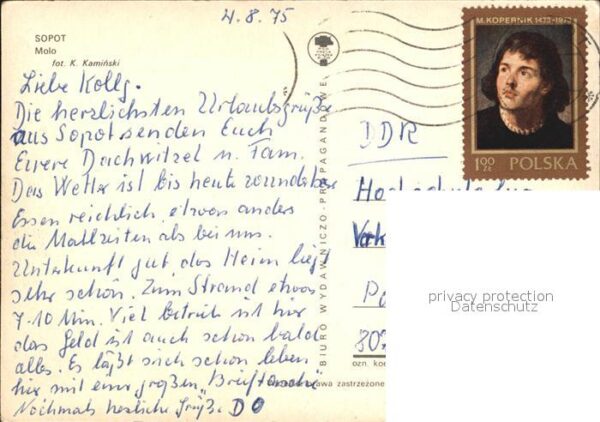 4.8.75
SOPOT
Molo
fot. K. Kamiński
M. KOPERNIK 1473-1973
1,00 ZŁ POLSKA
BIURO WYDAWNICZO-PROPAGANDOWE
Liebe Kollg.
Die herzlichsten Urlaubsgrüße
aus Sopot senden Euch
Euere Dachwitzel u. Fam.
Das Wetter ist bis heute wunderbar
Essen reichlich, etwas anders
die Mahlzeiten als bei uns.
Unterkunft gut, das Heim liegt
sehr schön. Zum Strand etwas
7-10 Min. Viel Betrieb ist hier
das Geld ist auch schon bald
alles. Es läßt sich schon leben
hier mit einer großen "Brieftasche"
Nochmals herzliche Grüße DO
DDR
Hochschule
Verk
Po
801
privacy protection
Datenschutz
ozn. kor
zastrzeżone